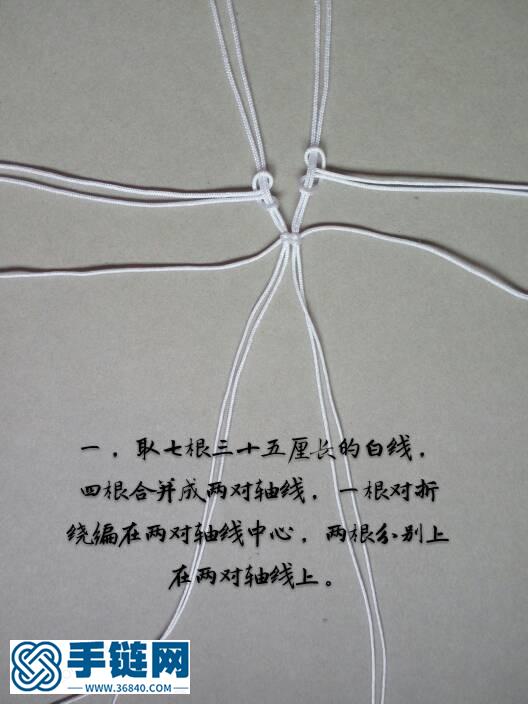 一，取七根三十五厘长的白线，
四根合并成两对轴线，一根对折
绕编在两对轴线中心，两根分别上
在两对轴线上。
手链网
WWW.36840.COM